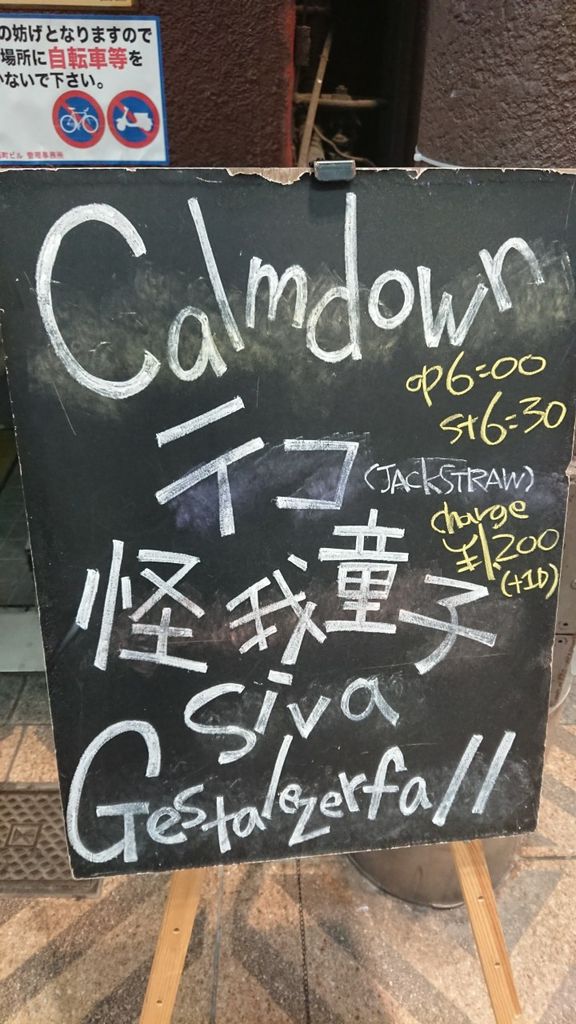 の妨げとなりますので
場所に自転車等を
ないで下さい。
町ビル 管理事務所
Calmdown
op6:00
st6:30
テコ (JACKSTRAW)
charge
¥1,200
(+1D)
怪我童子
siva
Gestalezerfall